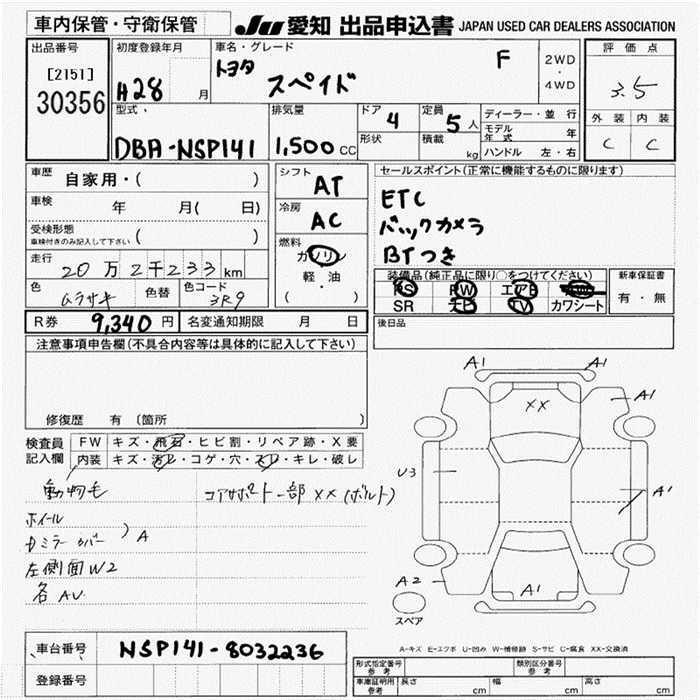 車内保管・守衛保管 JU 愛知 出品申込書 JAPAN USED CAR DEALERS ASSOCIATION
出品番号
[2151]
30356
初度登録年月
H28 月
車名・グレード
トヨタ スペイド F
2WD
・
4WD
評価点
3.5
外装 内装
C C
型式
DBA-NSP141
排気量
1,500 CC
ドア 4
形状
定員 5 人
積載 kg
ディーラー・並行
モデル年式 年
ハンドル 左・右
車歴 自家用・( )
車検 年 月( 日)
受検形態
車検付きのみ記入して下さい ( )
走行 20万2千233km
色 ムラサキ 色替 色コード 3R9
シフト AT
冷房 AC
燃料
ガソリン
軽・油
( )
セールスポイント(正常に機能するものに限ります)
ETC
バックカメラ
BTつき
装備品(純正品に限り○をつけてください)
PS PW エアB
SR ナビ TV カワシート
新車保証書
有・無
後日品
R券 9,340 円 名変通知期限 月 日
注意事項申告欄(不具合内容等は具体的に記入して下さい)
修復歴 有 〔箇所 〕
検査員記入欄
FW キズ・飛石・ヒビ割・リペア跡・X要
内装 キズ・汚レ・コゲ・穴・スレ・キレ・破レ
動物毛
コアサポート一部XX(ボルト)
ホイール
ドミラーカバー ) A
左側面W2
各AU
A1 A1
A1
XX
U3
A1
A2
A1
スペア
A-キズ E-エクボ U-凹み W-補修跡 S-サビ C-腐食 XX-交換済
車台番号 NSP141-8032236
登録番号
形式指定番号 参考
類別区分番号 参考
車庫証明用 参考 長さ cm 幅 cm 高さ cm